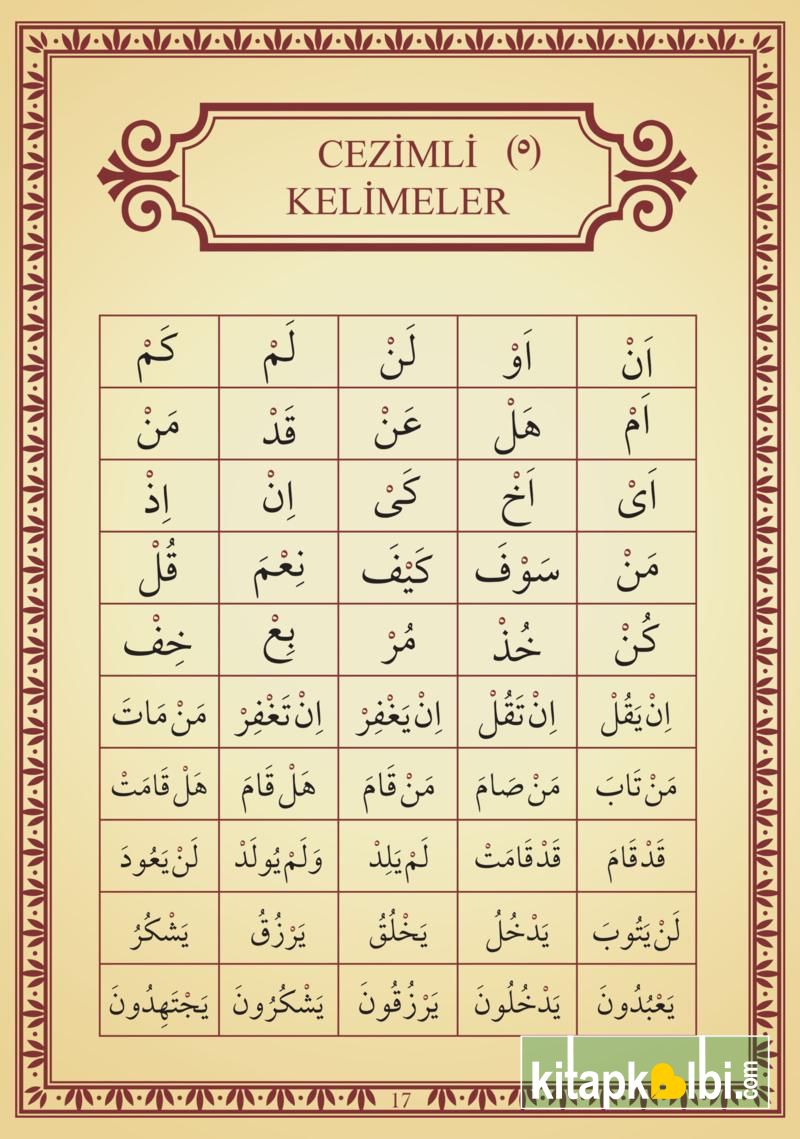 CEZİMLİ (ْ)
KELİMELER
اَنْ اَوْ لَنْ لَمْ كَمْ
اَمْ هَلْ عَنْ قَدْ مَنْ
اَىْ اَخْ كَىْ اِنْ اِذْ
مَنْ سَوْفَ كَيْفَ نِعْمَ قُلْ
كُنْ خُذْ مُرْ بِعْ خِفْ
اِنْ يَقُلْ اِنْ تَقُلْ اِنْ يَغْفِرْ اِنْ تَغْفِرْ مَنْ مَاتَ
مَنْ تَابَ مَنْ صَامَ مَنْ قَامَ هَلْ قَامَ هَلْ قَامَتْ
قَدْ قَامَ قَدْ قَامَتْ لَمْ يَلِدْ وَلَمْ يُولَدْ لَنْ يَعُودَ
لَنْ يَتُوبَ يَدْخُلُ يَخْلُقُ يَرْزُقُ يَشْكُرُ
يَعْبُدُونَ يَدْخُلُونَ يَرْزُقُونَ يَشْكُرُونَ يَجْتَهِدُونَ
17
kitapkalbi.com